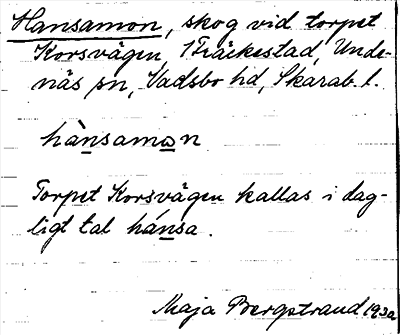 Hansamon, skog vid torpet
Korsvägen, 1 Fräckestad, Unde-
näs sn, Vadsbo hd, Skarab. l.
hànsamon
Torpet Korsvägen kallas i dag-
ligt tal hánsa.
Maja Bergstrand 1930